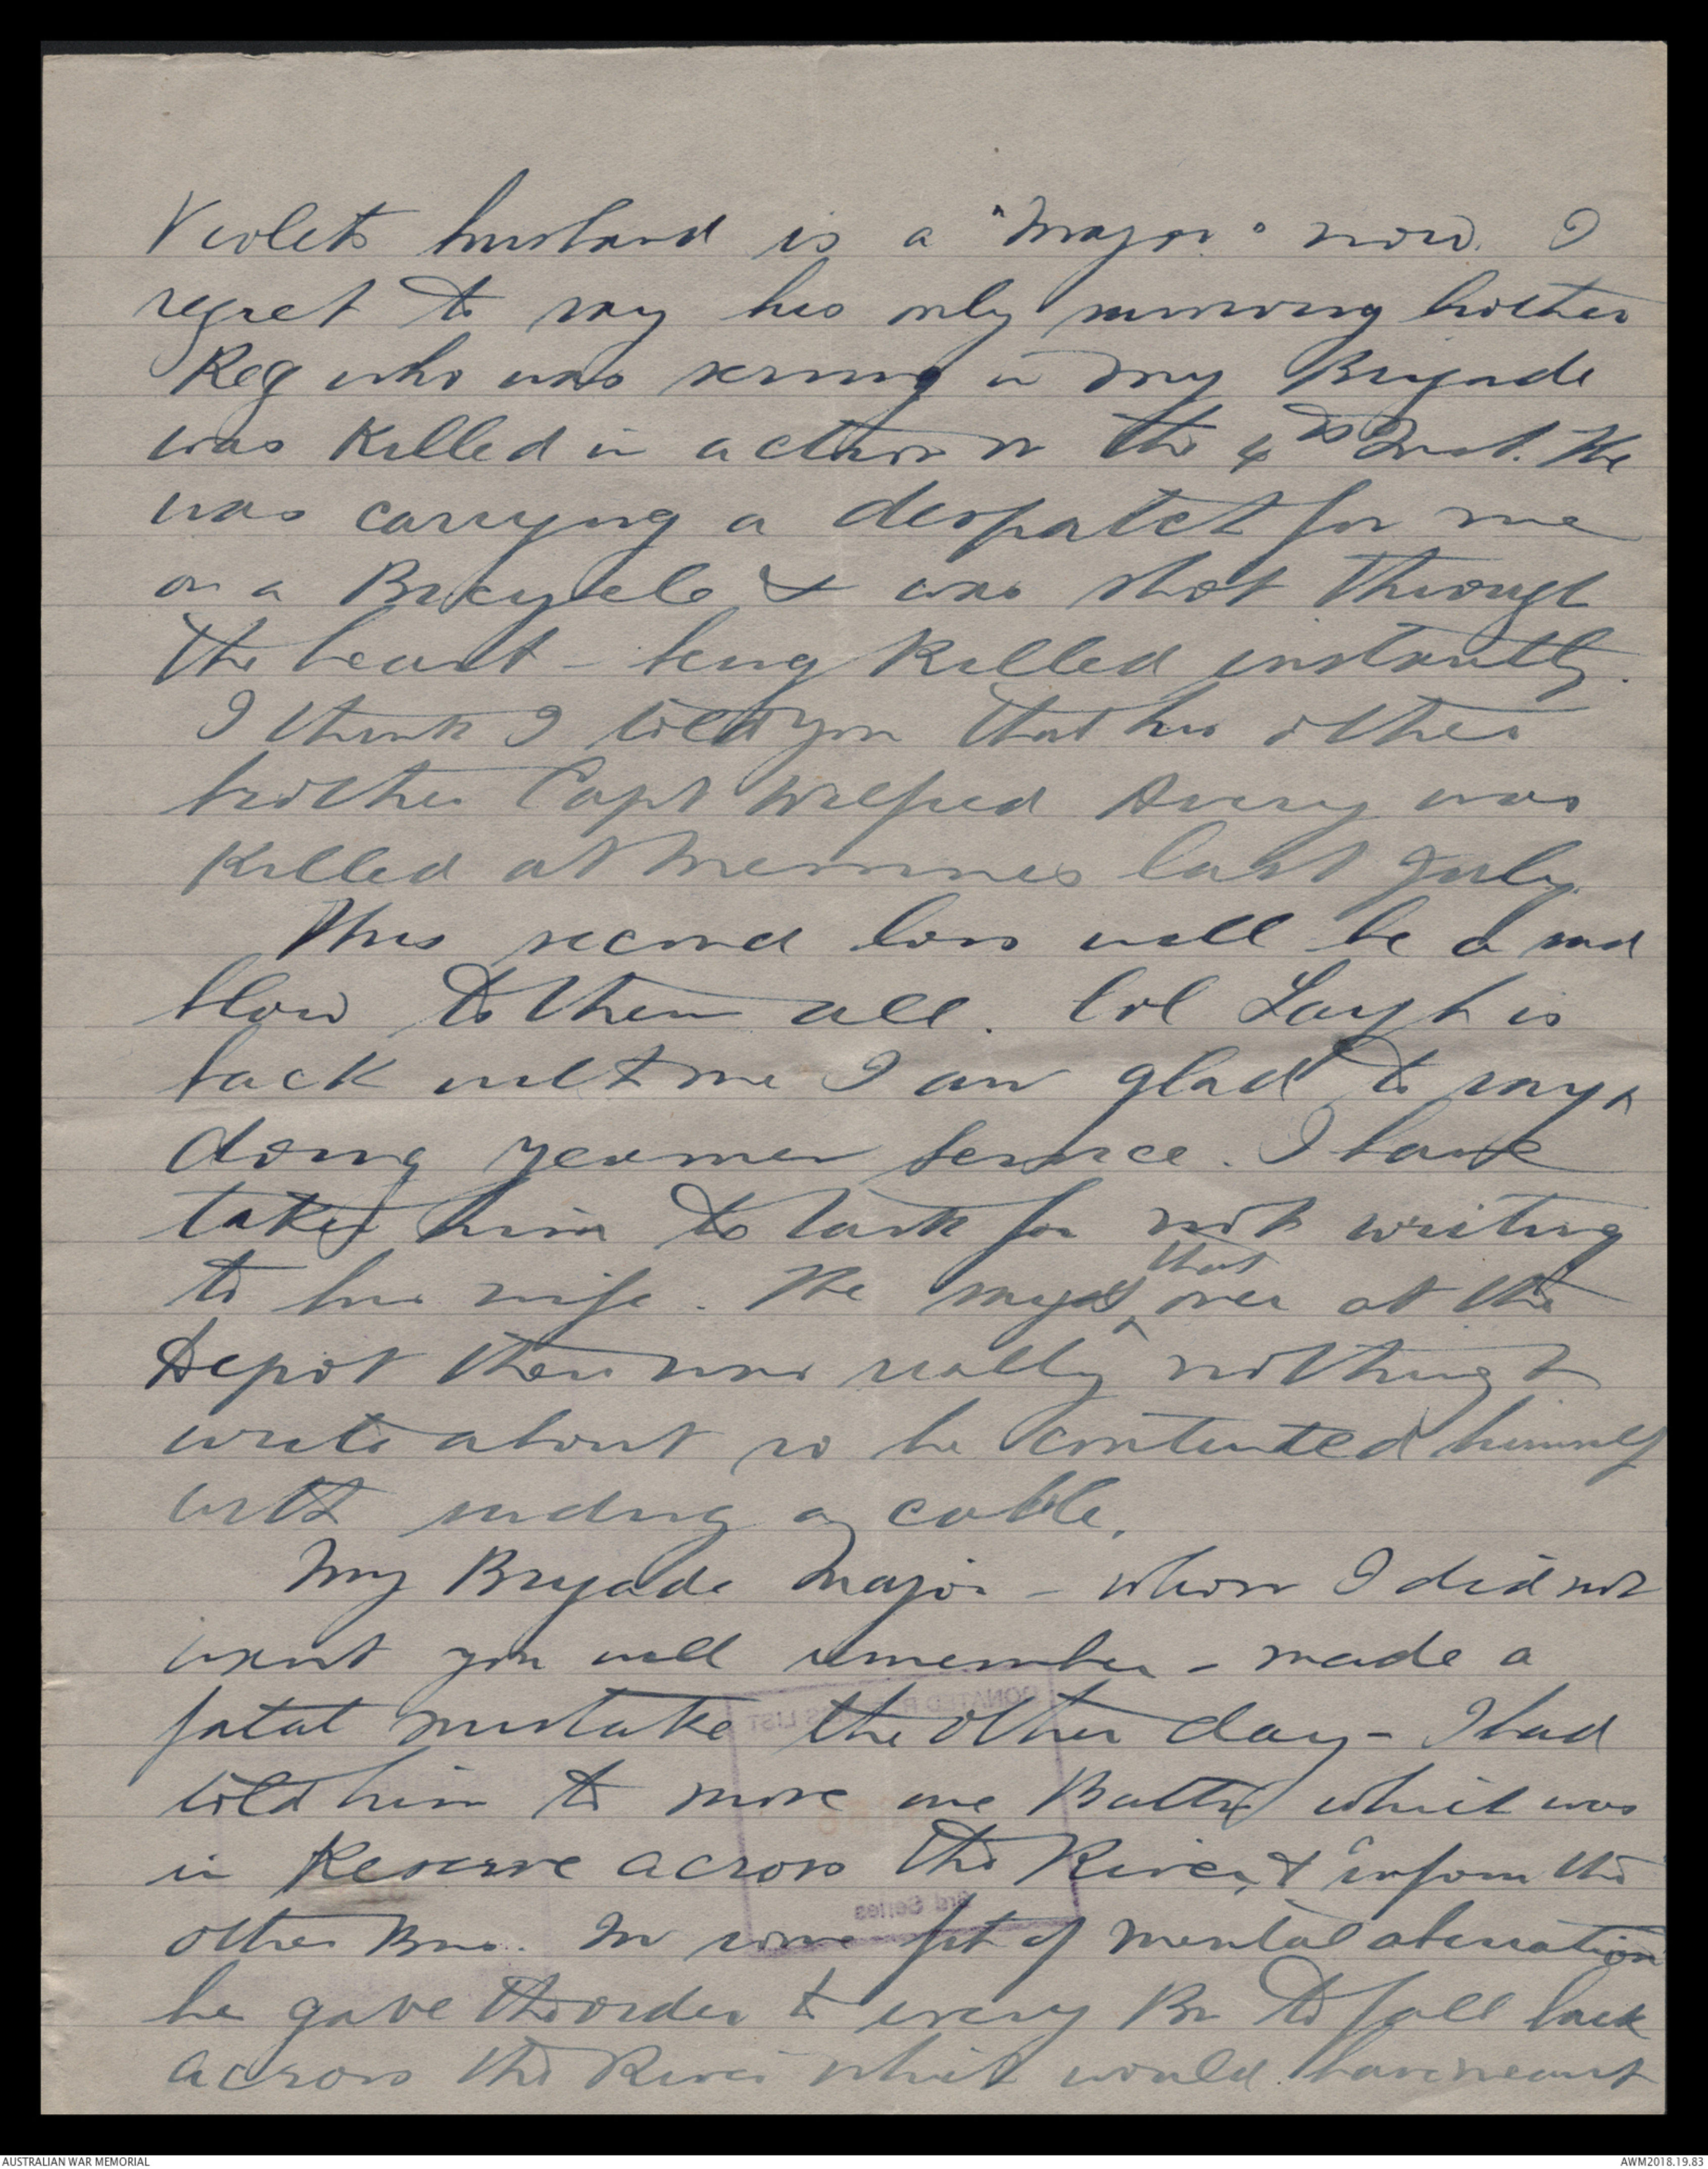 Violets husband is a "Major" now. I
regret to say his only surviving brother
Reg who was serving in my Brigade
was killed in action on the 4th Inst. He
was carrying a despatch for me
on a Bicycle & was shot through
the heart - being killed instantly.
I think I told you that his other
brother Capt Wilfred Avery was
killed at Messines last July.
This second loss will be a sad
blow to them all. Col Leigh is
back with me I am glad to say,
doing yeoman service. I have
taken him to task for not writing
to his wife. He says that over at the
Depot there was really nothing to
write about so he contented himself
with sending a cable.
My Brigade Major - whom I did not
want you will remember - made a
fatal mistake the other day - I had
told him to move one Battn which was
in Reserve across the River, & inform the
other Bns. In some fit of mental aberration
he gave the order to every Bn to fall back
across the River which would have meant
DONATED RECORDS LIST
3rd Series
AUSTRALIAN WAR MEMORIAL
AWM2018.19.83